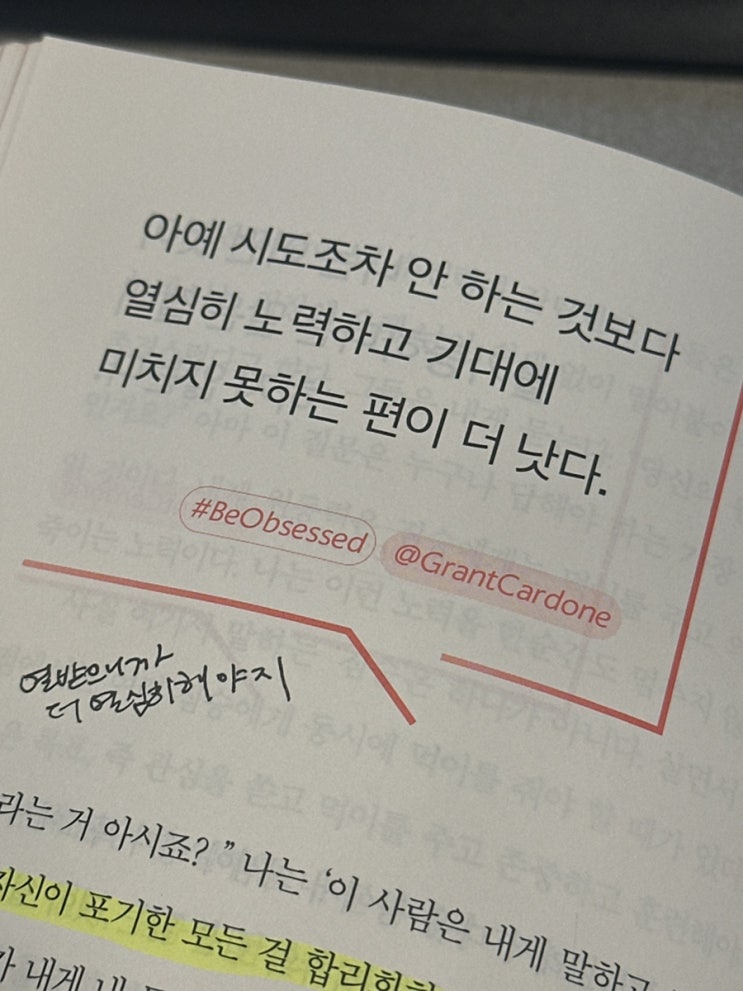 아예 시도조차 안 하는 것보다
열심히 노력하고 기대에
미치지 못하는 편이 더 낫다.
#BeObsessed @GrantCardone
열받으니까
더 열심히해야지
라는 거 아시죠?” 나는 ‘이 사람은 내게 말하고
자신이 포기한 모든 걸 합리화하
가 내게